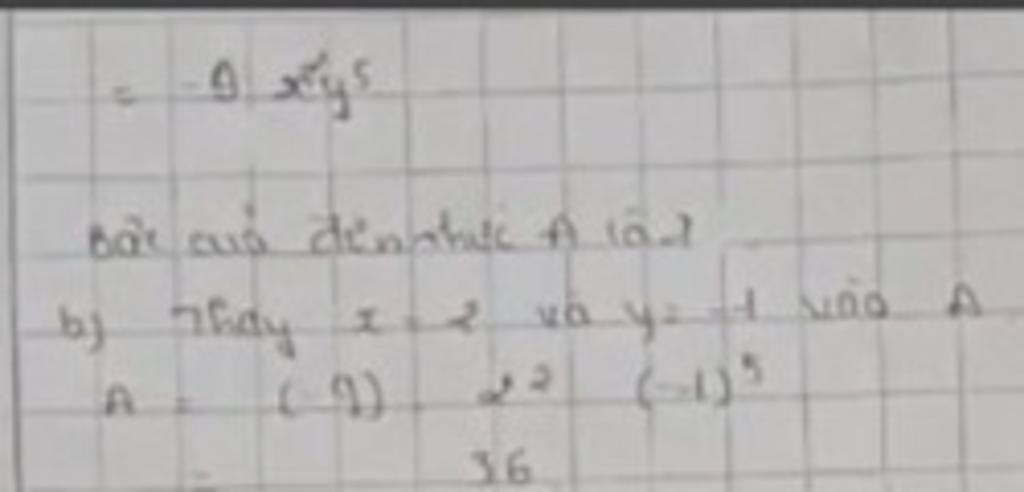 = -9 x²y⁵
Bậc của đơn thức A là 7
b) Thay x = 2 và y = -1 vào A
A = (-9) 2² (-1)⁵
= 36